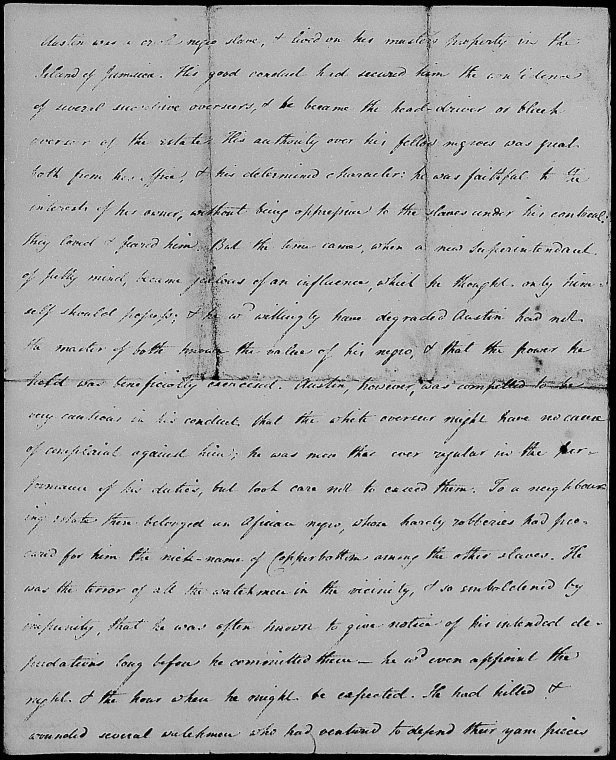 Austin was a creole negro slave, & lived on his master's property in the
Island of Jamaica. His good conduct had secured him the confidence
of several successive overseers, & he became the head-driver or black
overseer of the estate. His authority over his fellow negroes was great
both from his office, & his determined character: he was faithful to the
interests of his owner, without being oppressive to the slaves under his control;
they loved & feared him. But the time came, when a new superintendant
of petty mind, became jealous of an influence, which he thought only him-
self should possess; & he wd willingly have degraded Austin had not
the master of both known the value of his negro, & that the power he
held was beneficially exercised. Austin, however, was compelled to be
very cautious in his conduct that the white overseer might have no cause
of complaint against him; he was more than ever regular in the per-
formance of his duties, but took care not to exceed them. To a neighbour-
ing estate there belonged an African negro, whose hardy robberies had pro-
cured for him the nick-name of Copperbottom among the other slaves. He
was the terror of all the watchmen in the vicinity, & so emboldened by
impunity, that he was often known to give notice of his intended de-
predations long before he committed them — he wd even appoint the
night & the hour when he might be expected. He had killed &
wounded several watchmen who had ventured to defend their yam pieces